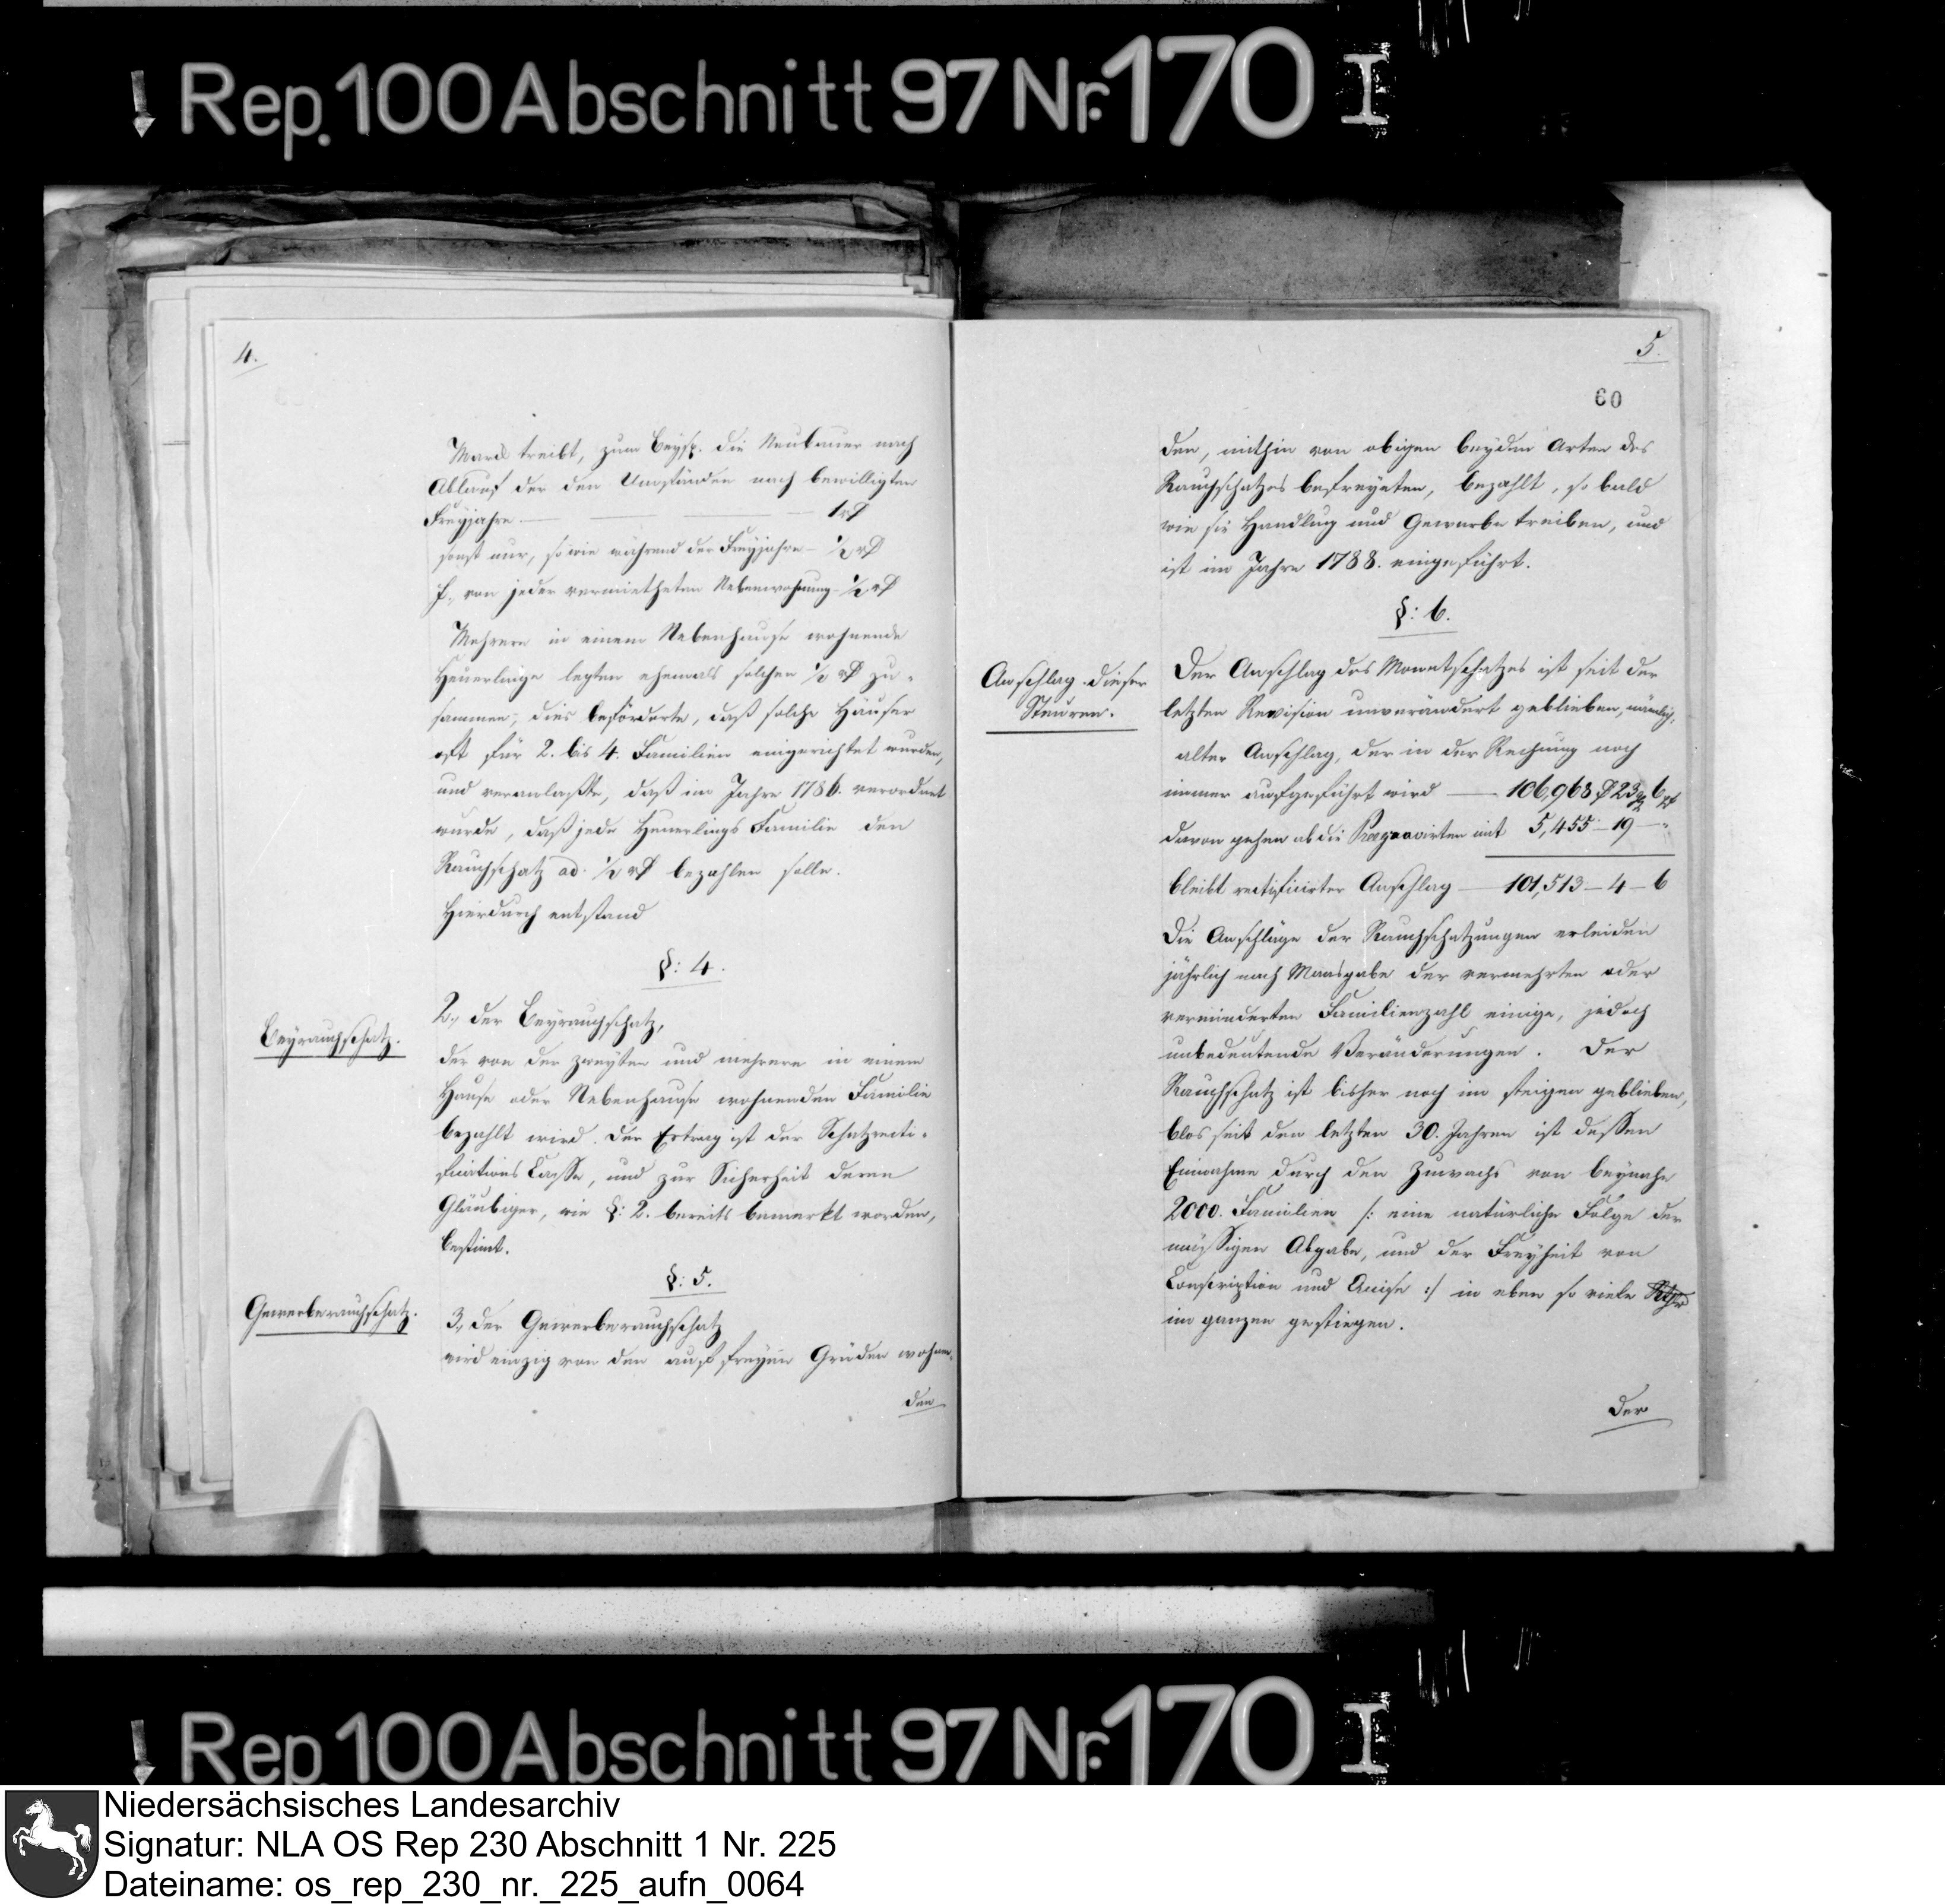 Rep. 100 Abschnitt 97 Nr. 170 I
4.
Mark treibt, zum Beysp. die Neubauer nach
Ablauf der den Umständen nach bewilligten
Freyjahre — 1 rℓ
sonst nur, so wie während der Freyjahre — ½ rℓ
f., von jeder vermietheten Nebenwohnung — ½ rℓ
Mehrere in einem Nebenhause wohnende
Heuerlinge legten ehemals solchen ½ rℓ zu-
sammen; dies beförderte, daß solche Häuser
oft für 2. bis 4. Familien eingerichtet wurden,
und veranlaßte, daß im Jahre 1786. verordnet
wurde, daß jede Heuerlings Familie den
Rauchschatz ad. ½ rℓ bezahlen solle.
Hierdurch entstand
§: 4.
Beyrauchschatz.
2., der Beyrauchschatz,
der von der zweyten und mehrere in einem
Hause oder Nebenhause wohnenden Familie
bezahlt wird. Der Ertrag ist der Schatzrecti-
fications Casse, und zur Sicherheit deren
Gläubiger, wie §: 2. bereits bemerkt worden,
bestimt.
§: 5.
Gewerberauchschatz.
3., der Gewerberauchschatz
wird einzig von den auf freyen Gründen wohnen-
den
5.
60
den, mithin von obigen beyden Arten des
Rauchschatzes befreyeten, bezahlt, so bald
wie sie Handlung und Gewerbe treiben, und
ist im Jahre 1788. eingeführt.
§: 6.
Anschlag dieser
Steuren.
Der Anschlag des Monatschatzes ist seit der
letzten Revision unverändert geblieben, nämlich,
alter Anschlag, der in der Rechnung noch
immer aufgeführt wird — 106,968 rℓ 23 6
davon gehen ab die mit 5,455 — 19 — "
bleibt rectificirter Anschlag — 101,513 — 4 — 6
Die Anschläge der Rauchschatzungen erleiden
jährlich nach Maasgabe der vermehrten oder
verminderten Familienzahl einige, jedoch
unbedeutende Veränderungen. Der
Rauchschatz ist bisher noch im steigen geblieben,
blos seit den letzten 30. Jahren ist dessen
Einnahme durch den Zuwachs von beynahe
2000. Familien /: eine natürliche Folge der
mässigen Abgabe, und der Freyheit von
Conscription und Accise :/ in eben so viele
im ganzen gestiegen.
Der
Rep. 100 Abschnitt 97 Nr. 170 I
Niedersächsisches Landesarchiv
Signatur: NLA OS Rep 230 Abschnitt 1 Nr. 225
Dateiname: os_rep_230_nr._225_aufn_0064